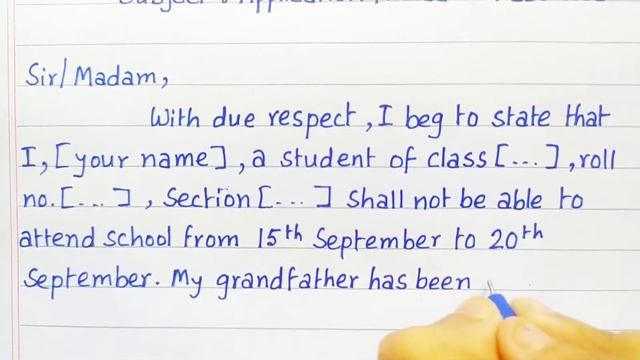 Subject: Application
Sir/Madam,
With due respect, I beg to state that
I, [your name], a student of class [...], roll
no. [...], Section [...] shall not be able to
attend school from 15th September to 20th
September. My grandfather has been